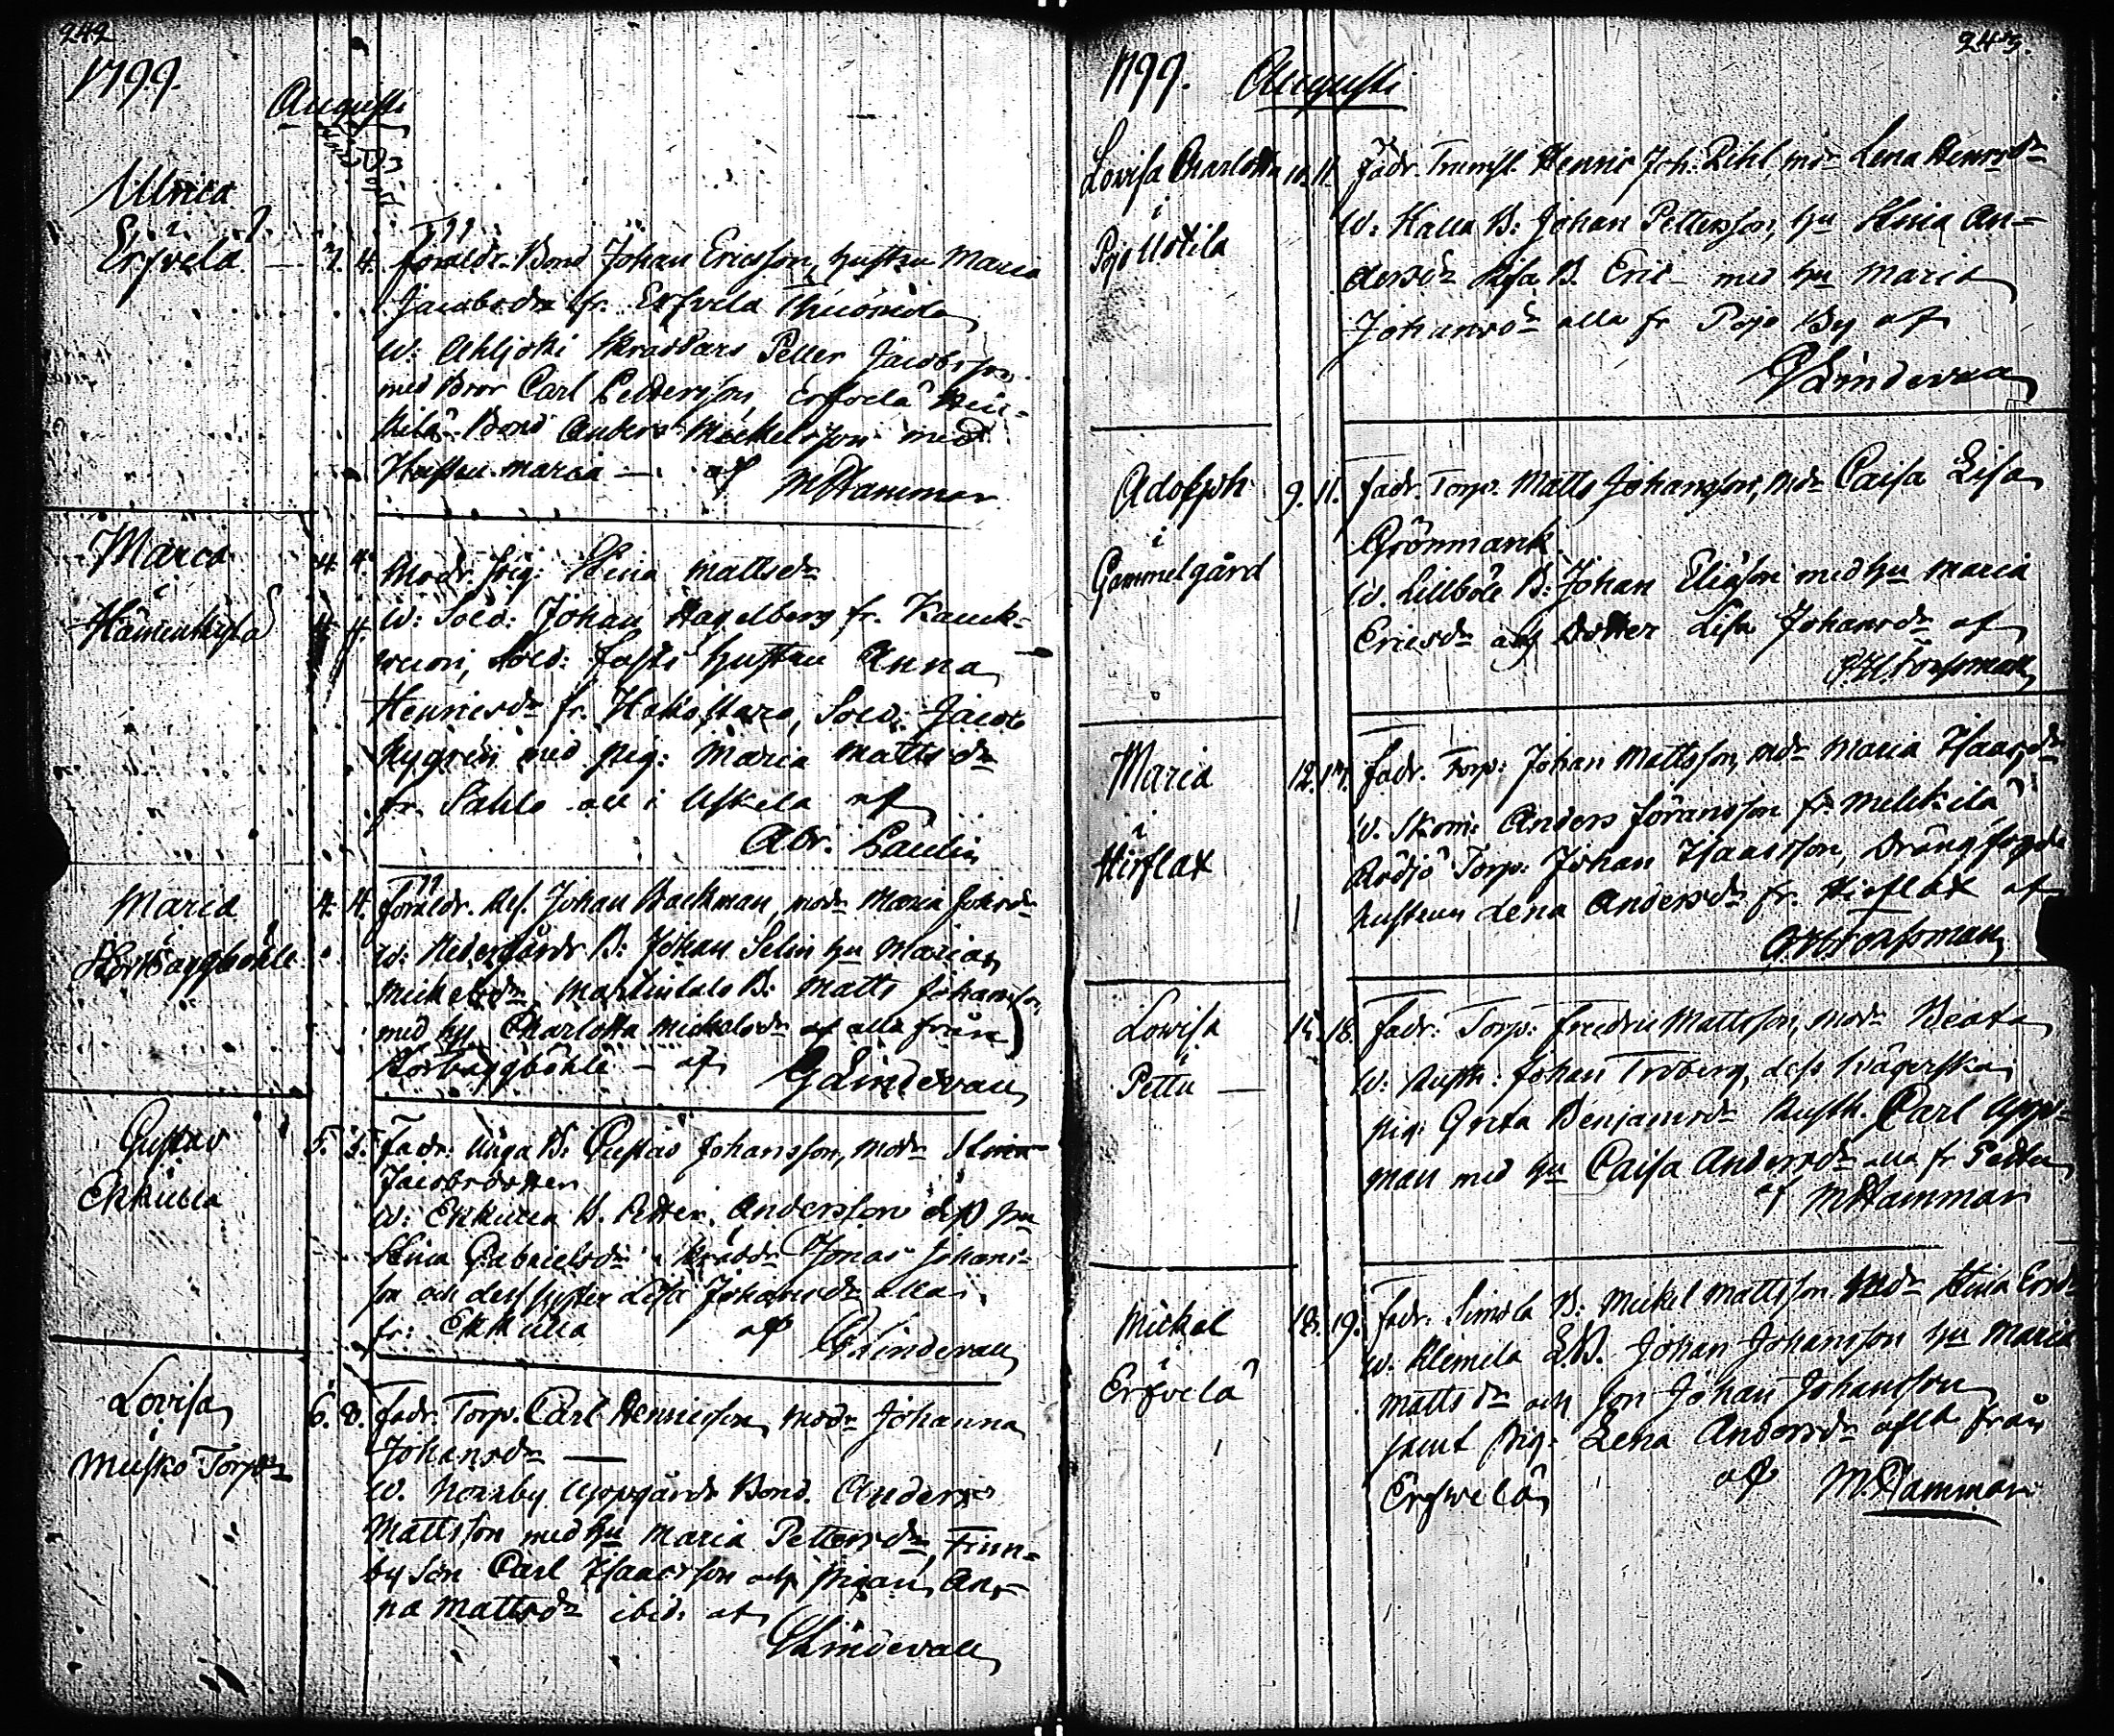 242
1799.
Augusti
Ulrica
i
Erfvelä
3. 4. Föräldr. Bond Johan Ericsson, hustru Maria
Jacobsdr fr. Erfvela
W: Ahljoki Skräddare Petter Jacobsson
med Bror Carl Pettersson, Erfvelä
kilä Bond Anders Mickelsson med
Hustru Maria — af MHammar
Maria
i
4. 4. Modr. pig: Stina Mattsdr
W: Sold: Johan Hagelberg fr.
Sold: hustru Anna
Henricsdr fr. Sold: Jacob
Nygrén med pig: Maria Mattsdr
fr. Sahlo all i Uskela af
Abr. Paulin
Maria
i
Storbaggböhle
4. 4. Föräldr. Johan Backman, modr Maria
W: Nedergårds B: Johan Selin hu Maria
Mickelsdr, Martindals B: Matts Johansson
med hu Charlotta Mickelsdr alla från
Storbaggböhle — af GLindevall
Gustav
Ekkulla
5. 5. Fadr. B: Gustav Johansson, modr Stina
Jacobsdotter
W: Ekkulla B. Petter Andersson dess hu
Stina Gabrielsdr Jonas Johans-
son och dess syster Lisa Johansdr alla
fr: Ekkulla af GLindevall
Lovisa
i
Musko Torp
6. 8. Fadr. Torp. Carl Henricsson, modr Johanna
Johansdr —
W. Norrby Uppgårds Bond. Anders
Mattsson med hu Maria Pettersdr, Finn-
by Son Carl Isaacsson och pigan An-
na Mattsdr ibid: af
GLindevall
243.
1799. Augusti
Lovisa Charlotta
i
Pojo
10. 11. Fadr. Henric Joh: modr Lena
W: Kalla B: Johan Pettersson, hu Stina An-
dersdr B. Eric med hu Maria
Johansdr alla fr Pojo By af
GLindevall
Adolph
i
Gammelgård
9. 11. Fadr. Torp. Matts Johansson, modr Caisa Lisa
Grönmark
W. Lillböle B: Johan Eliasson med hu Maria
Ericsdr och Dotter Lisa Johansdr af
Forssman
Maria
i
Hirflax
12. Fadr. Torp: Johan Mattsson, modr Maria Isaacsdr
W. Anders Göransson fr. Melckilä
Torp: Johan Isaacsson,
hustrun Lena Andersdr fr. Hirflax af
Forssman
Lovisa
i
Pettu —
15. 18. Fadr: Torp: Fredric Mattsson, modr Beata
W: Rusth: Johan Troberg, dess Swägerska
pig: Greta Benjamsdr Rusth. Carl Upp-
man med hu Caisa Andersdr alla fr. Pettu
af MHammar
Mickel
i
Erfvelä
18. 19. Fadr. Simola B: Mickel Mattsson Modr Stina
W. Klemela B. Johan Johansson hu Maria
Mattsdr och Son Johan Johansson
samt pig: Lena Andersdr från
Erfwelä af M.Hammar